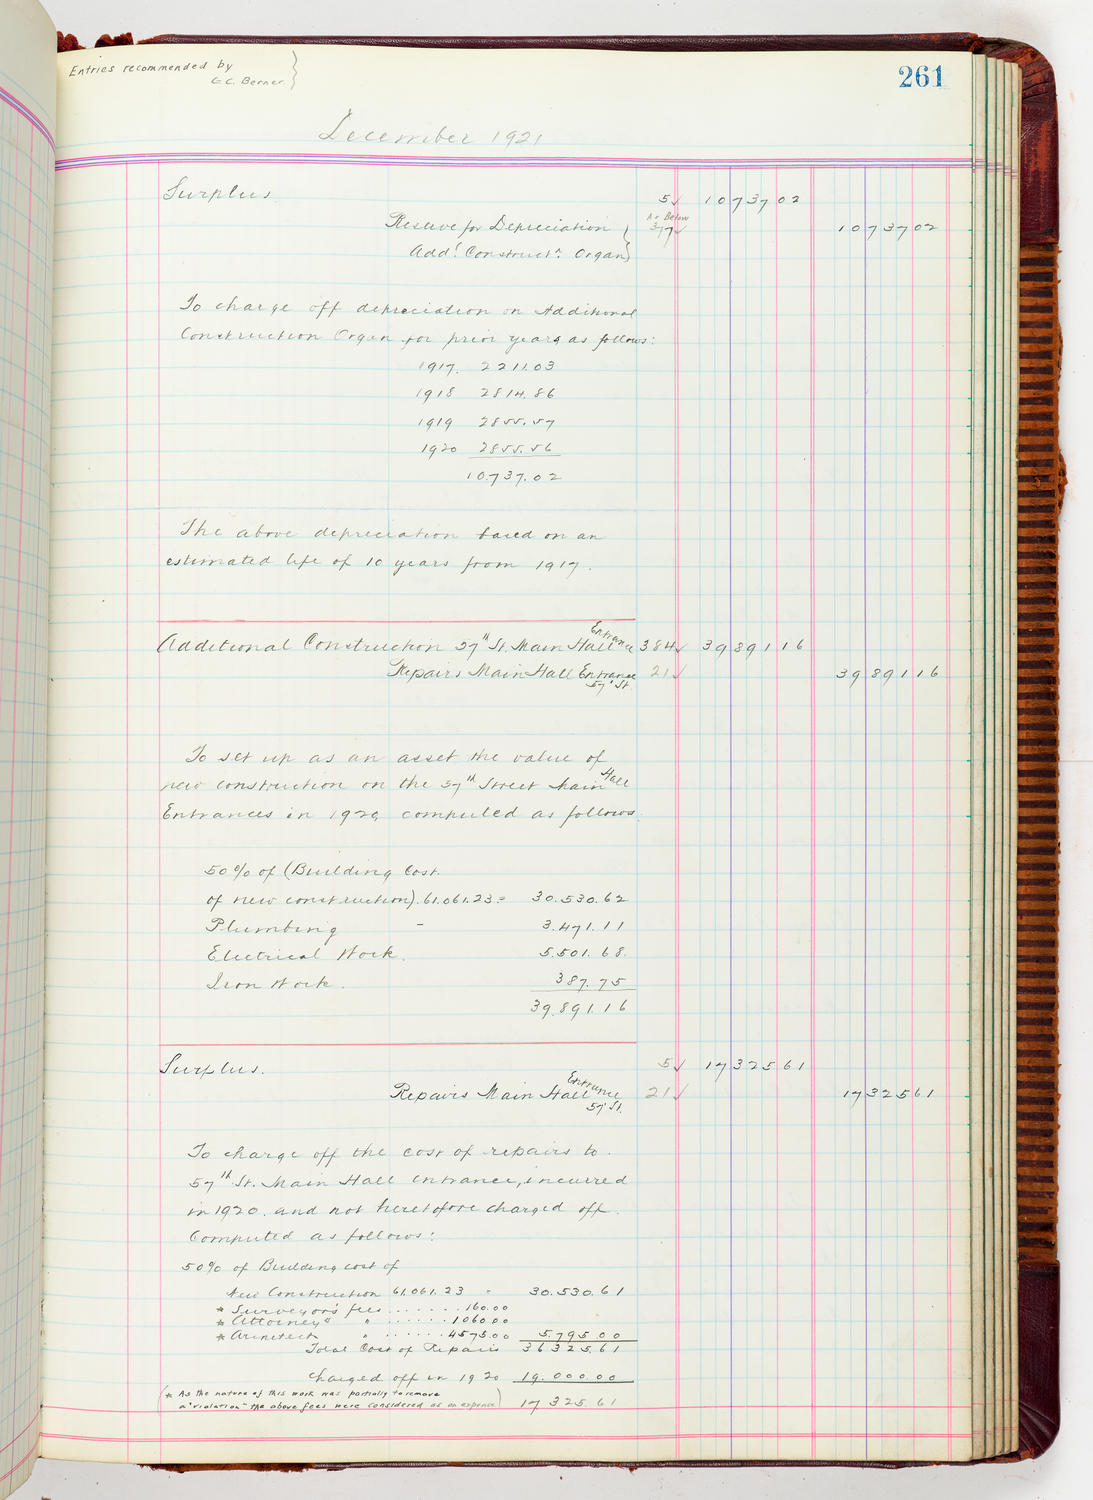 Entries recommended by
G C. Berner.
261
December 1921
Surplus 5✓ 10737 02
As Below
Reserve for Depreciation 377✓ 10737 02
Add'l Construct'n Organ
To charge off depreciation on Additional
Construction Organ for prior years as follows:
1917. 2211.03
1918 2814.86
1919 2855.57
1920 2855.56
10.737.02
The above depreciation based on an
estimated life of 10 years from 1917.
Additional Construction 57th St. Main Hall Entrance 384✓ 39891 16
Repairs Main Hall Entrance 21✓ 39891 16
57" St.
To set up as an asset the value of
new construction on the 57th Street Main Hall
Entrances in 1920, computed as follows.
50% of (Building Cost.
of new construction). 61.061.23 = 30.530.62
Plumbing - 3.471.11
Electrical Work. 5.501.68.
Iron Work. 387.75
39.891.16
Surplus. 5✓ 17325 61
Repairs Main Hall Entrance 21✓ 17325 61
57" St.
To charge off the cost of repairs to
57th St. Main Hall entrance, incurred
in 1920. and not heretofore charged off.
Computed as follows:
50% of Building cost of
New Construction 61.061.23 = 30.530.61
* Surveyor's fees ....... 160.00
* Attorney's " ...... 1060.00
* Architect " ...... 4575.00 5.795.00
Total Cost of Repairs 36325.61
Charged off in 1920 19.000.00
(* As the nature of this work was partially to remove
a "violation" the above fees were considered as an expense) 17 325.61